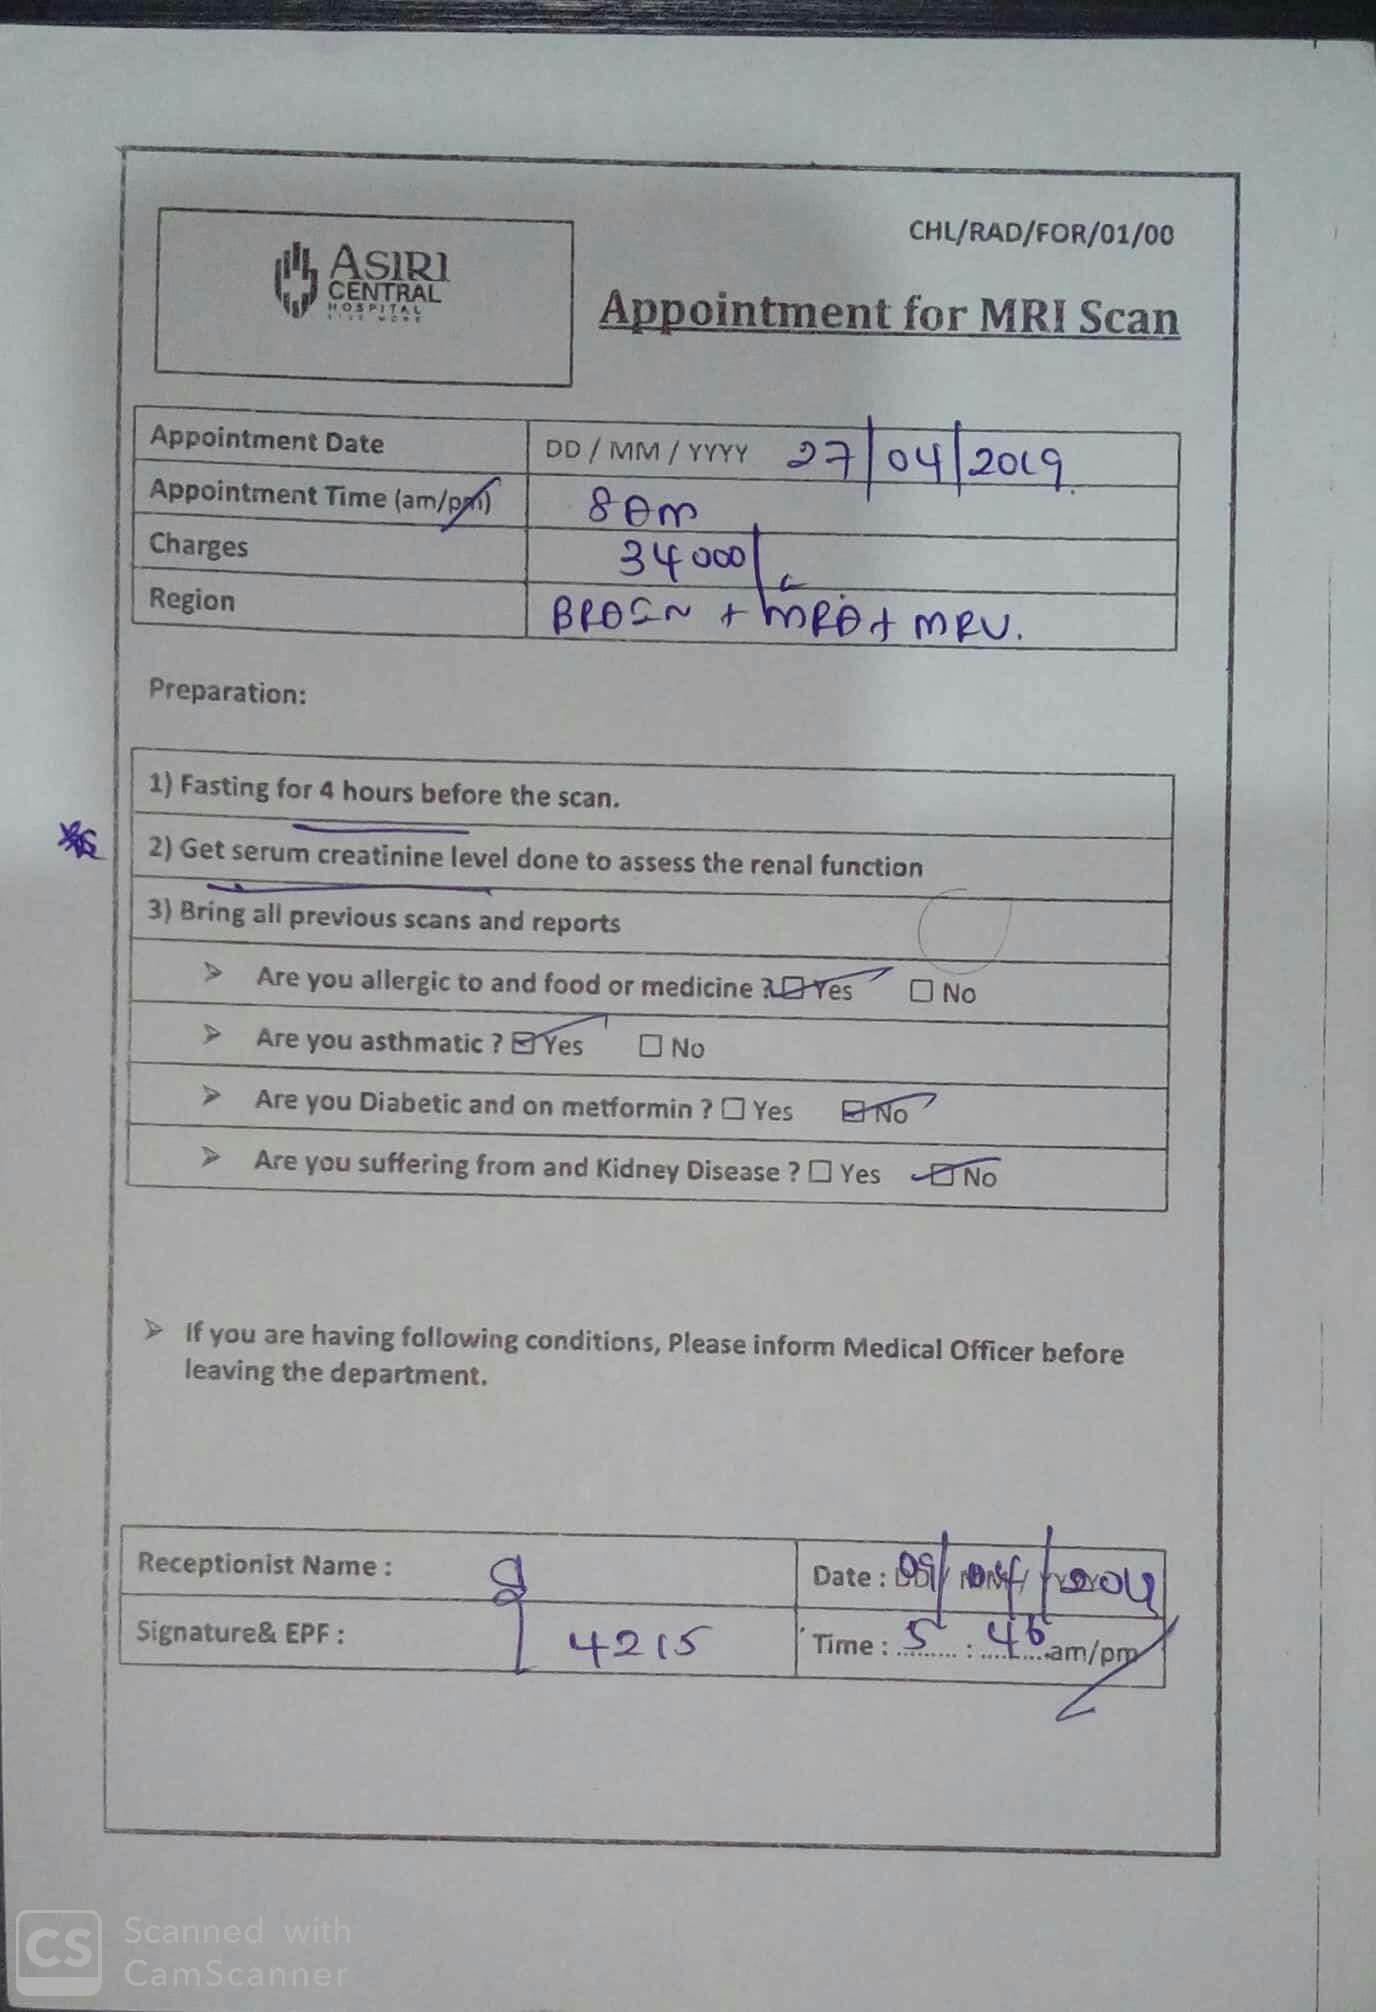 CHL/RAD/FOR/01/00
ASIRI
CENTRAL
HOSPITAL
LIVE MORE
Appointment for MRI Scan
Appointment Date DD / MM / YYYY 27/04/2019
Appointment Time (am/pm) 8 Am
Charges 34000/
Region BRAIN + MRA + MRV.
Preparation:
1) Fasting for 4 hours before the scan.
2) Get serum creatinine level done to assess the renal function
3) Bring all previous scans and reports
➢ Are you allergic to and food or medicine ? ☑ Yes ☐ No
➢ Are you asthmatic ? ☑ Yes ☐ No
➢ Are you Diabetic and on metformin ? ☐ Yes ☑ No
➢ Are you suffering from and Kidney Disease ? ☐ Yes ☑ No
➢ If you are having following conditions, Please inform Medical Officer before
leaving the department.
Receptionist Name : Date :
Signature& EPF : 4215 Time : 5 : 46 am/pm
CS Scanned with
CamScanner